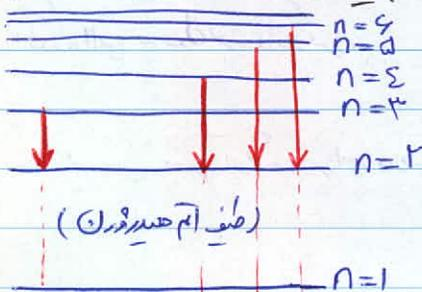 n=۶
n=۵
n=٤
n=۳
n=۲
(طیف اتم هیدروژن)
n=۱